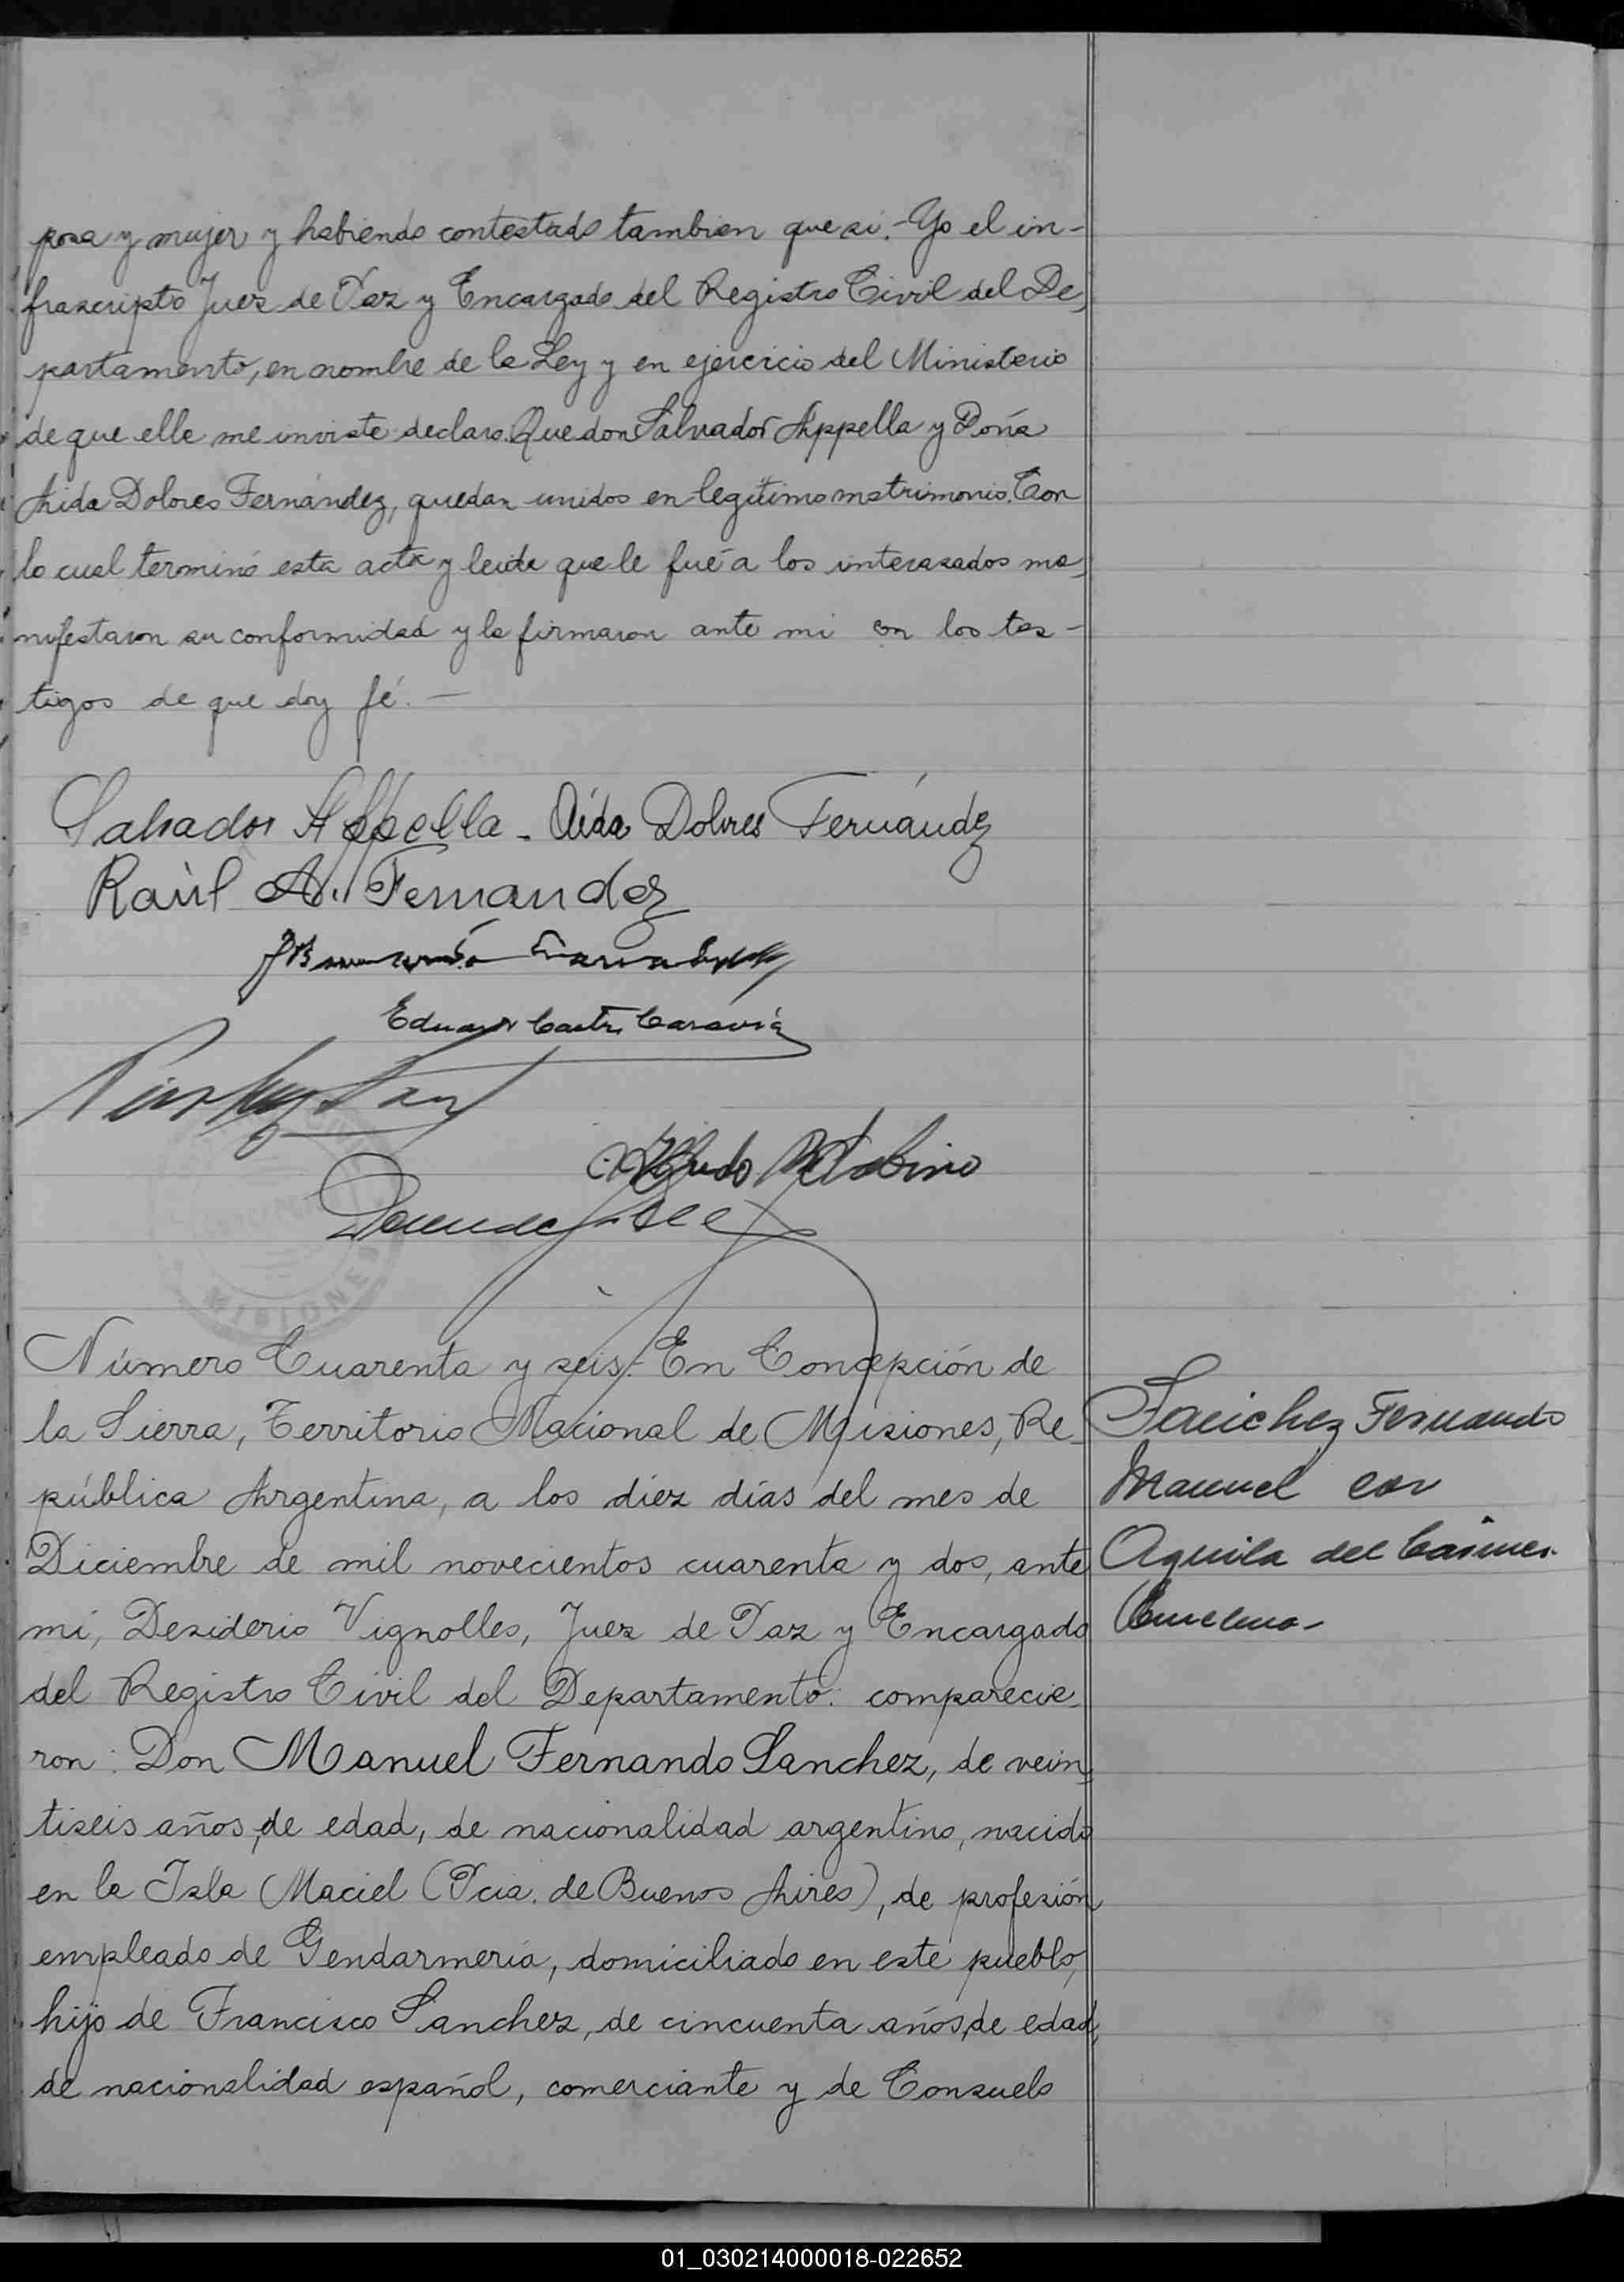 posa y mujer y habiendo contestado tambien que si.- Yo el in-
frascripto Juez de Paz y Encargado del Registro Civil del De-
partamento, en nombre de la Ley y en ejercicio del Ministerio
de que ella me inviste declaro. Que don Salvador Appella y Doña
Aida Dolores Fernández, quedan unidos en legítimo matrimonio. Con
lo cual terminó esta acta y leida que le fué a los interesados ma-
nifestaron su conformidad y la firmaron ante mi con los tes-
tigos de que doy fé. —
Salvador Appella - Aída Dolores Fernández
Raúl A. Fernandez
Eduardo Castro Caravia
MISIONES
Número Cuarenta y seis.- En Concepción de
la Sierra, Territorio Nacional de Misiones, Re-
pública Argentina, a los diez días del mes de
Diciembre de mil novecientos cuarenta y dos, ante
mí, Desiderio Vignolles, Juez de Paz y Encargado
del Registro Civil del Departamento: comparecie-
ron: Don Manuel Fernando Sanchez, de vein-
tiseis años, de edad, de nacionalidad argentino, nacido
en la Isla Maciel (Pcia. de Buenos Aires), de profesión
empleado de Gendarmería, domiciliado en este pueblo,
hijo de Francisco Sanchez, de cincuenta años, de edad,
de nacionalidad español, comerciante y de Consuelo
Sanchez Fernando
Manuel con
Aquila del Carmen
01_030214000018-022652